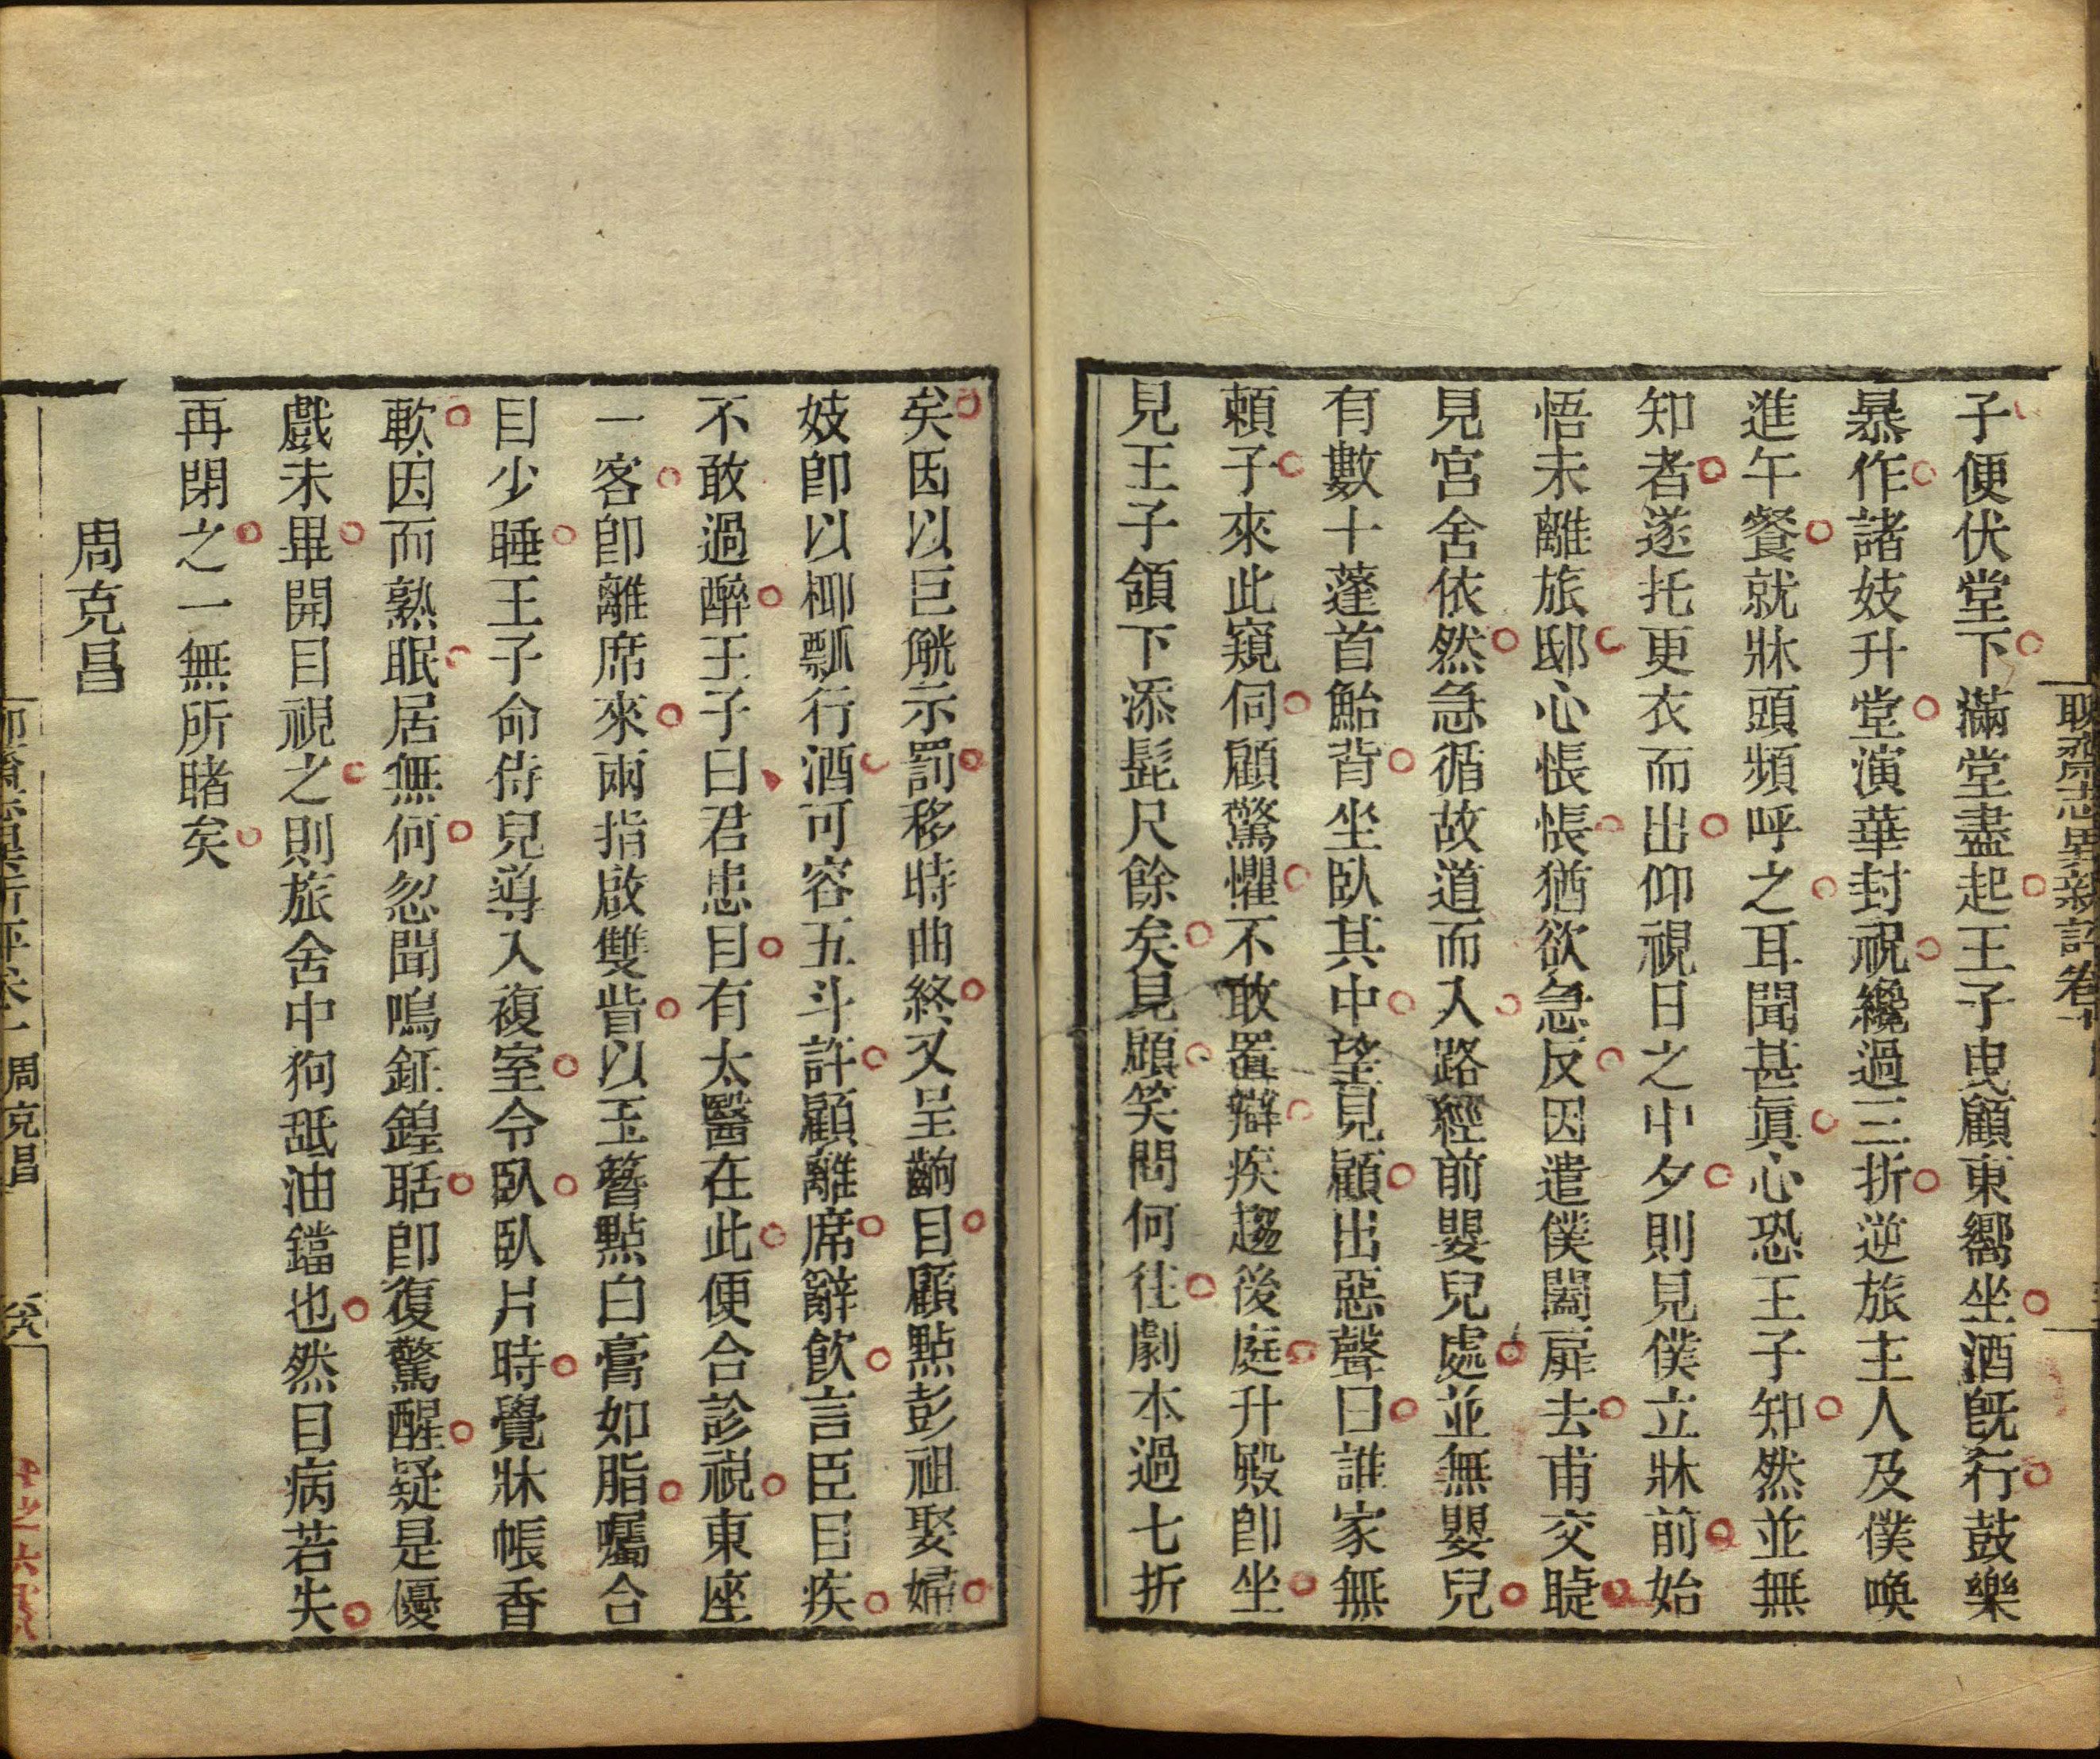 子便伏堂下滿堂盡起王子曳顧東嚮坐酒旣行鼓樂
暴作諸妓升堂演華封祝纔過三折逆旅主人及僕喚
進午餐就牀頭頻呼之耳聞甚眞心恐王子知然並無
知者遂托更衣而出仰視日之中夕則見僕立牀前始
悟未離旅邸心悵悵猶欲急反因遣僕闔扉去甫交睫
見宮舍依然急循故道而入路經前嬰兒處並無嬰兒
有數十蓬首鮐背坐臥其中望見顧出惡聲曰誰家無
賴子來此窺伺顧驚懼不敢置辯疾趨後庭升殿卽坐
見王子頷下添髭尺餘矣見顧笑問何往劇本過七折
矣因以巨觥示罰移時曲終又呈齣目顧點彭祖娶婦
妓卽以椰瓢行酒可容五斗許顧離席辭飮言臣目疾
不敢過醉王子曰君患目有太醫在此便合診視東座
一客卽離席來兩指啟雙眥以玉簪點白膏如脂囑合
目少睡王子命侍兒導入複室令臥臥片時覺牀帳香
軟因而熟眠居無何忽聞鳴鉦鍠聒卽復驚醒疑是優
戲未畢開目視之則旅舍中狗舐油鐺也然目病若失
再閉之一無所睹矣
周克昌
周克昌